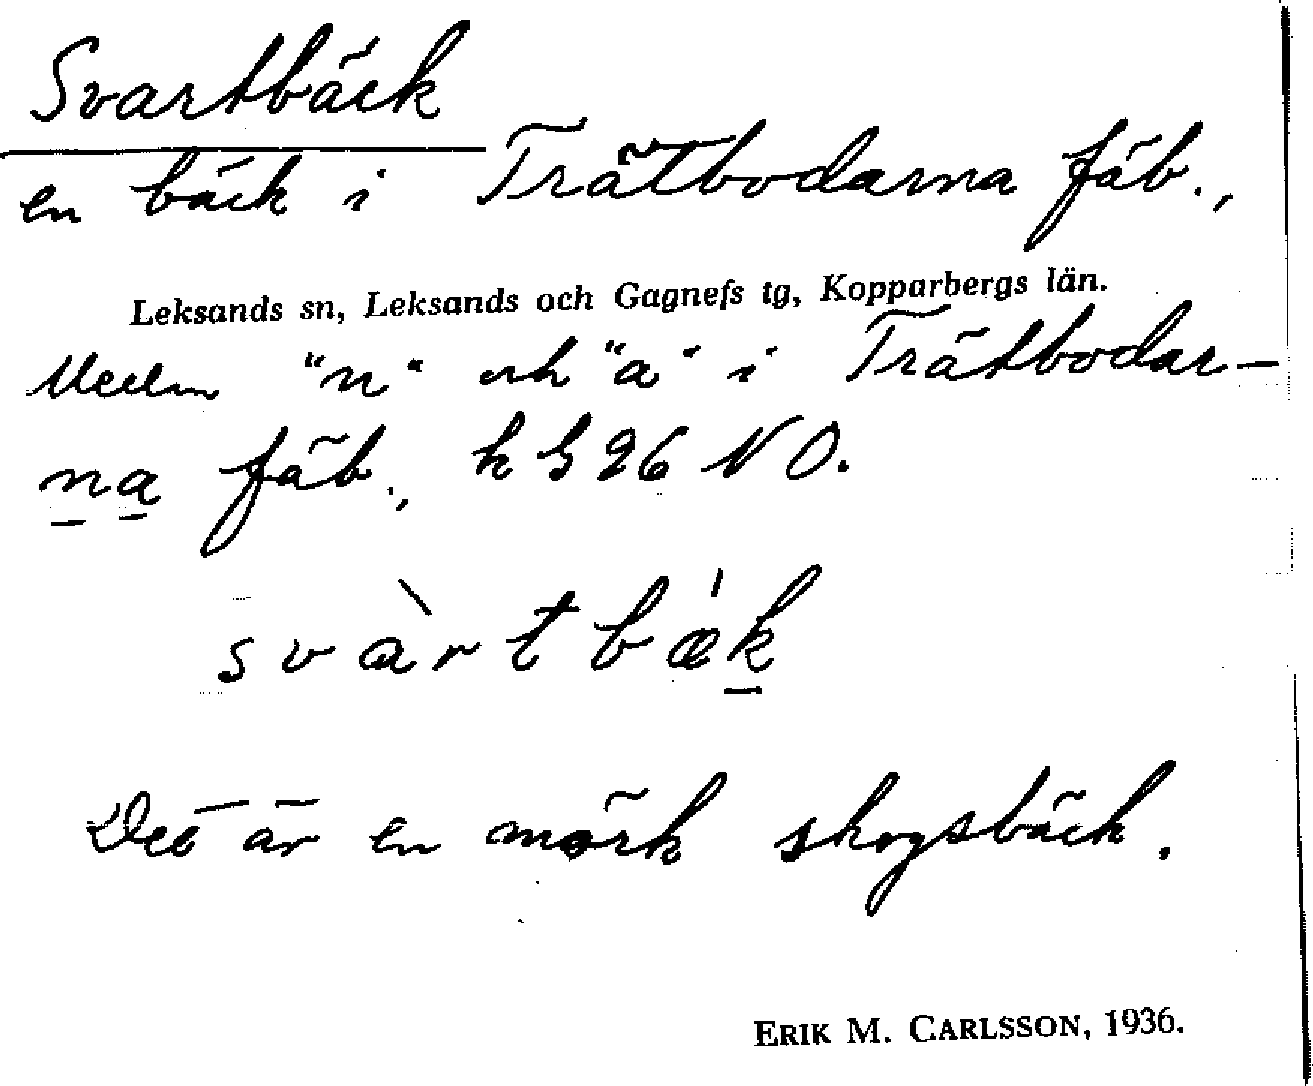 Svartbäck
en bäck i Trätbodarna fäb.,
Leksands sn, Leksands och Gagnefs tg, Kopparbergs län.
Mellan "n" och "a" i Trätbodar-
na fäb., k bl 96 NO.
svàrtbǽk
Det är en mörk skogsbäck.
ERIK M. CARLSSON, 1936.